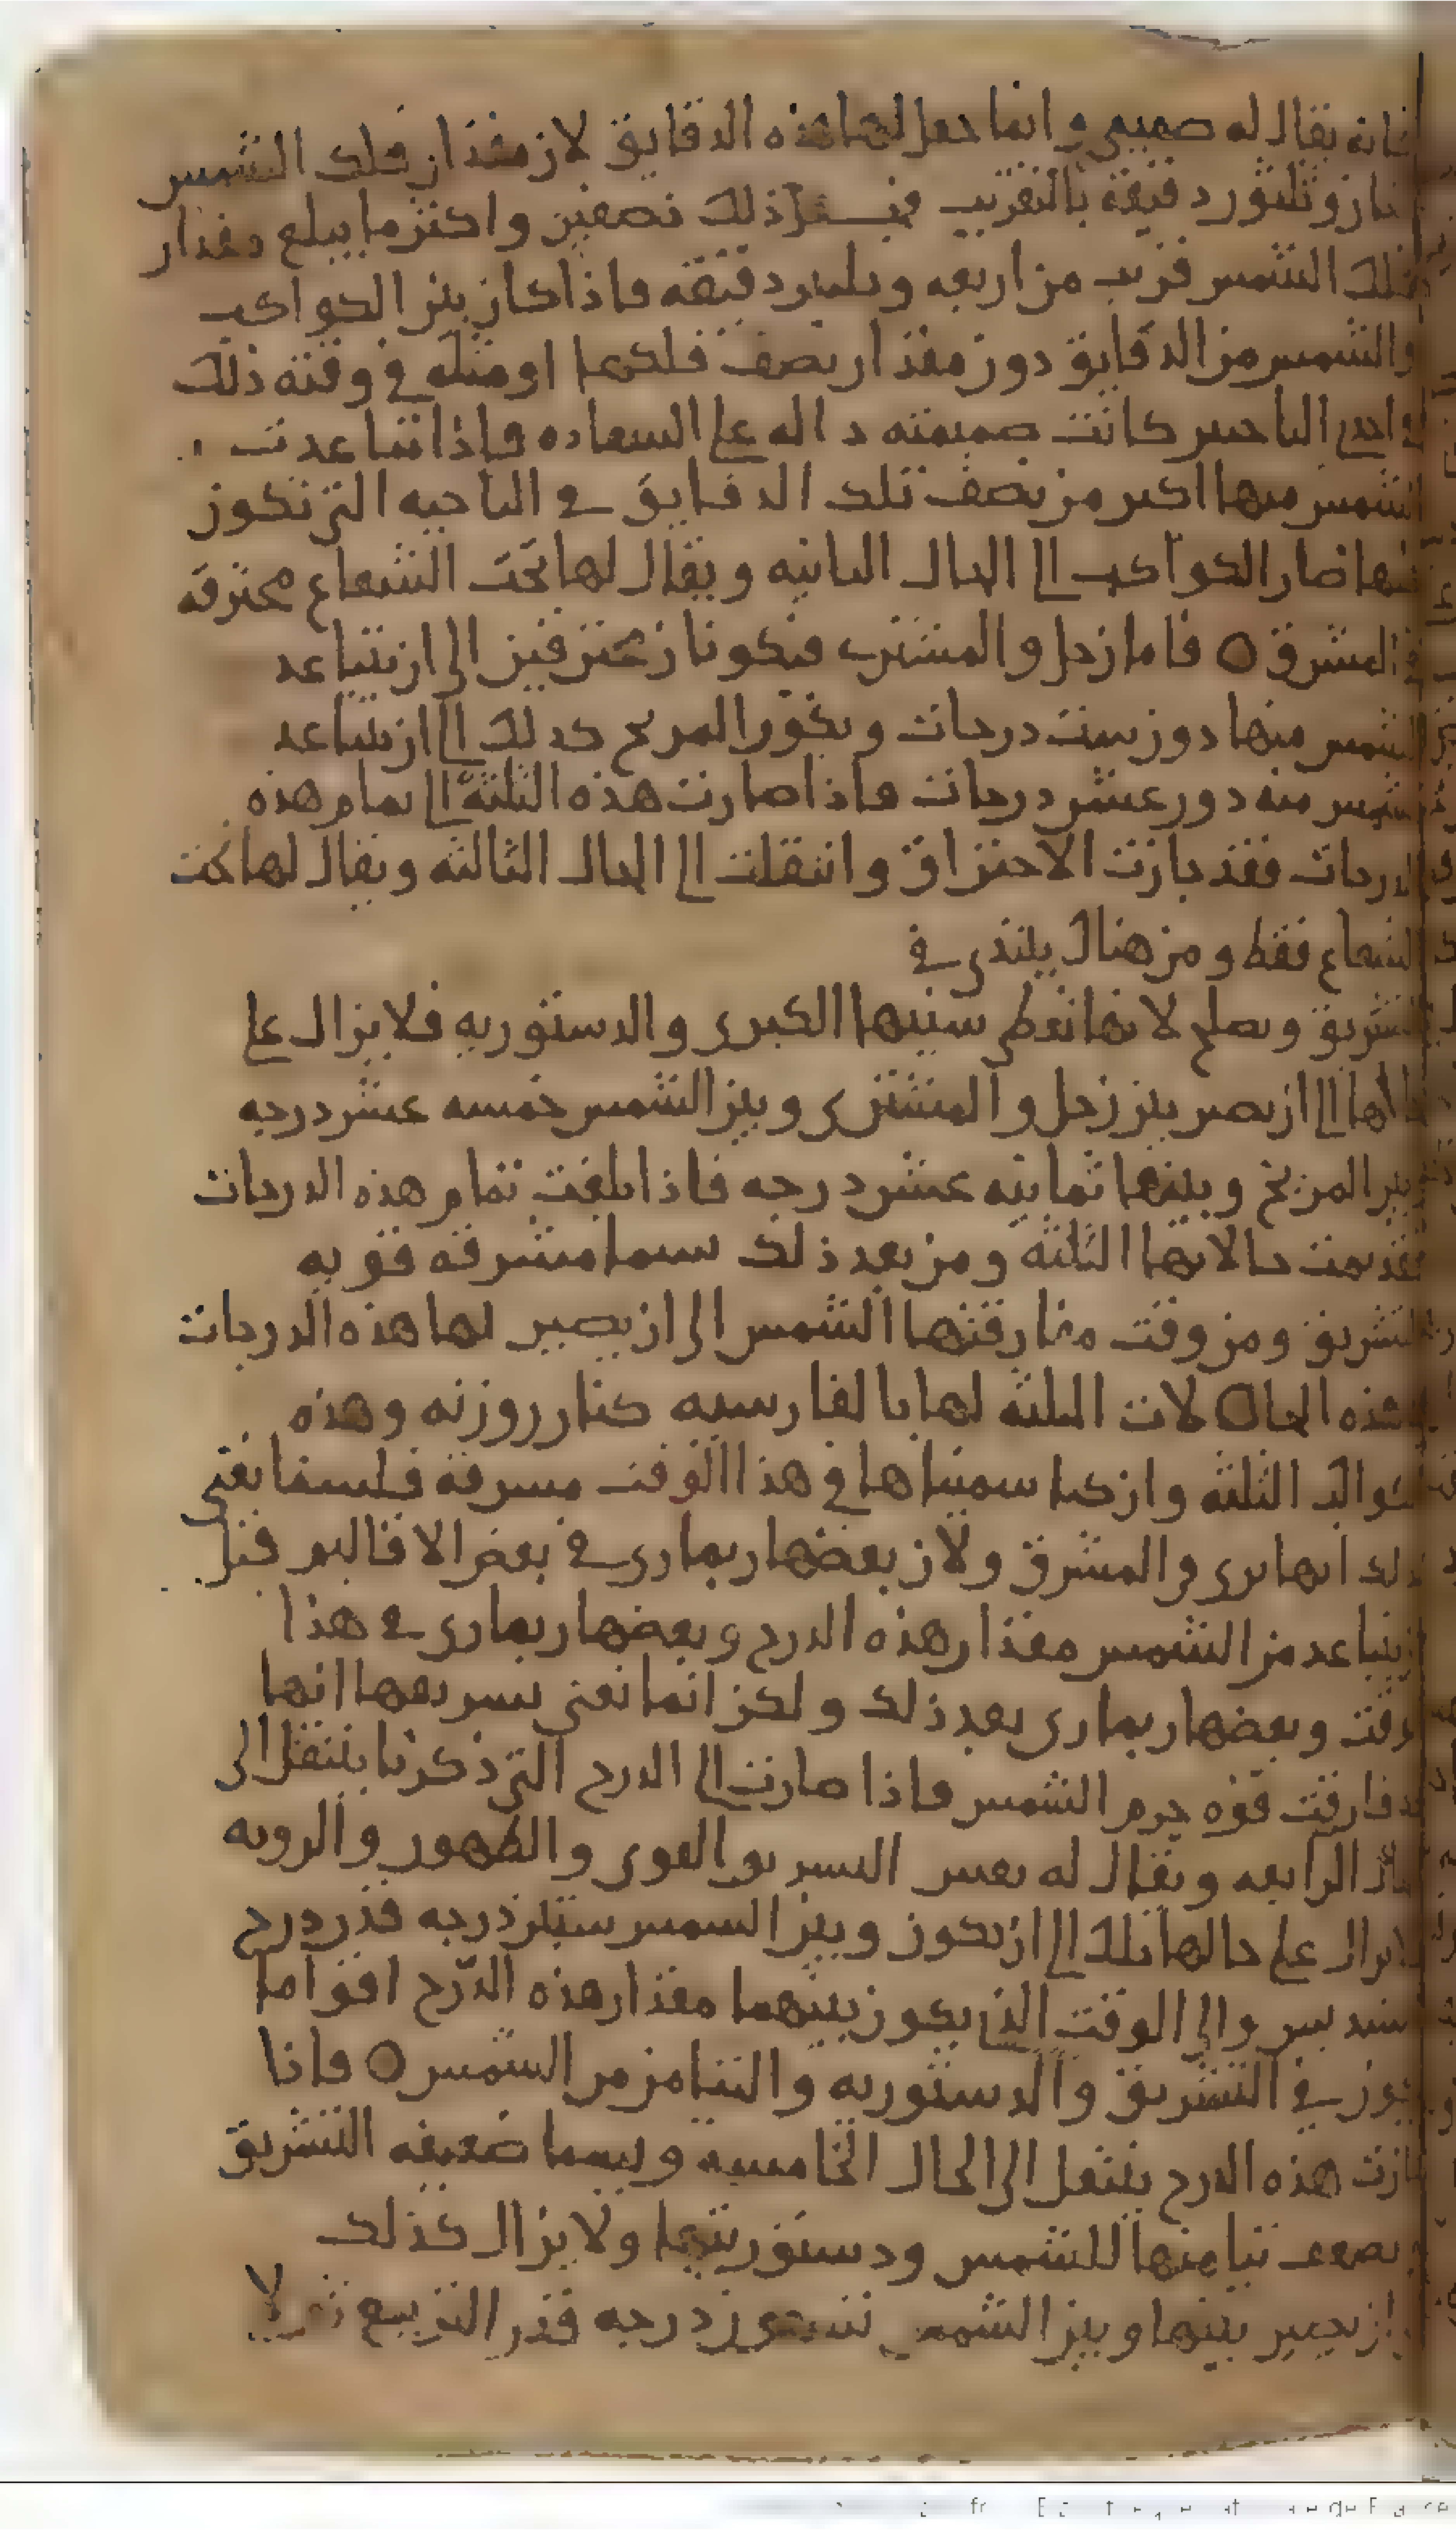 فانه يقال له صميمي وانما جعل لها هذه الدقايق لان مقدار فلك الشمس
وثلثون دقيقة بالتقريب ذلك نصفين واكثر ما يبلغ مقدار
فلك الشمس قريب من اربعه وثلثين دقيقه فاذا كان بين الكواكب
والشمس من الدقايق دون مقدار نصف فلكها او مثله في وقته ذلك
الناحيتين كانت صميميته داله على السعاده فاذا تباعدت
الشمس منها اكثر من نصف تلك الدقايق في الناحيه التي تكون
فيها صار الكواكب الى الحال الثانيه ويقال لها تحت الشعاع محترقه
في المشرق ○ فاما زحل والمشتري فيكونان محترقين الى ان تتباعد
الشمس منها دون ست درجات ويكون المريخ كذلك الى ان يتباعد
الشمس منه دون عشر درجات فاذا صارت هذه الثلثة الى تمام هذه
الدرجات فقد جازت الاحتراق وانتقلت الى الحال الثالثه ويقال لها تحت
الشعاع فقط ومن هناك يبتدي في
التشريق ويصلح لانها تعطي سنيها الكبرى والدستوريه فلا يزال على
حالها الى ان يصير بين زحل والمشتري وبين الشمس خمسه عشر درجه
وبين المريخ وبينها ثمانيه عشر درجه فاذا بلغت تمام هذه الدرجات
فقد تمت حالاتها الثلثه ومن بعد ذلك سما مشرقه قويه
التشريق ومن وقت مفارقتها الشمس الى ان يصير لها هذه الدرجات
هذه الحالات الثلثه لها بالفارسيه كنار روزنه وهذه
الثلثه وان كنا سميناها في هذا الوقت مشرقه فلسنا نعني
ذلك انها ترى في المشرق ولان بعضها ربما رري في بعض الاقاليم قبل
ان يتباعد من الشمس مقدار هذه الدرج وبعضها ربما رري في هذا
الوقت وبعضها ربما رري بعد ذلك ولكن انما نعني بتشريقها انها
قد فارقت قوه جرم الشمس فاذا صارت الى الدرج التي ذكرنا ينتقل الى
الحال الرابعه ويقال له التشريق القوي والظهور والرويه
ولا يزال على حالها تلك الى ان يكون وبين الشمس ستين درجه قدر درج
تسديس والى الوقت الذي يكون بينهما مقدار هذه الدرج اقوا ما
يكون في التشريق والدستوريه والتيامن من الشمس ○ فاذا
جازت هذه الدرج ينتقل الى الحال الخامسه ويسما ضعيفه التشريق
ويضعف تيامنها للشمس ودستوريتها ولا يزال كذلك
الى ان يصير بينها وبين الشمس تسعون درجه قدر التربيع ثم لا